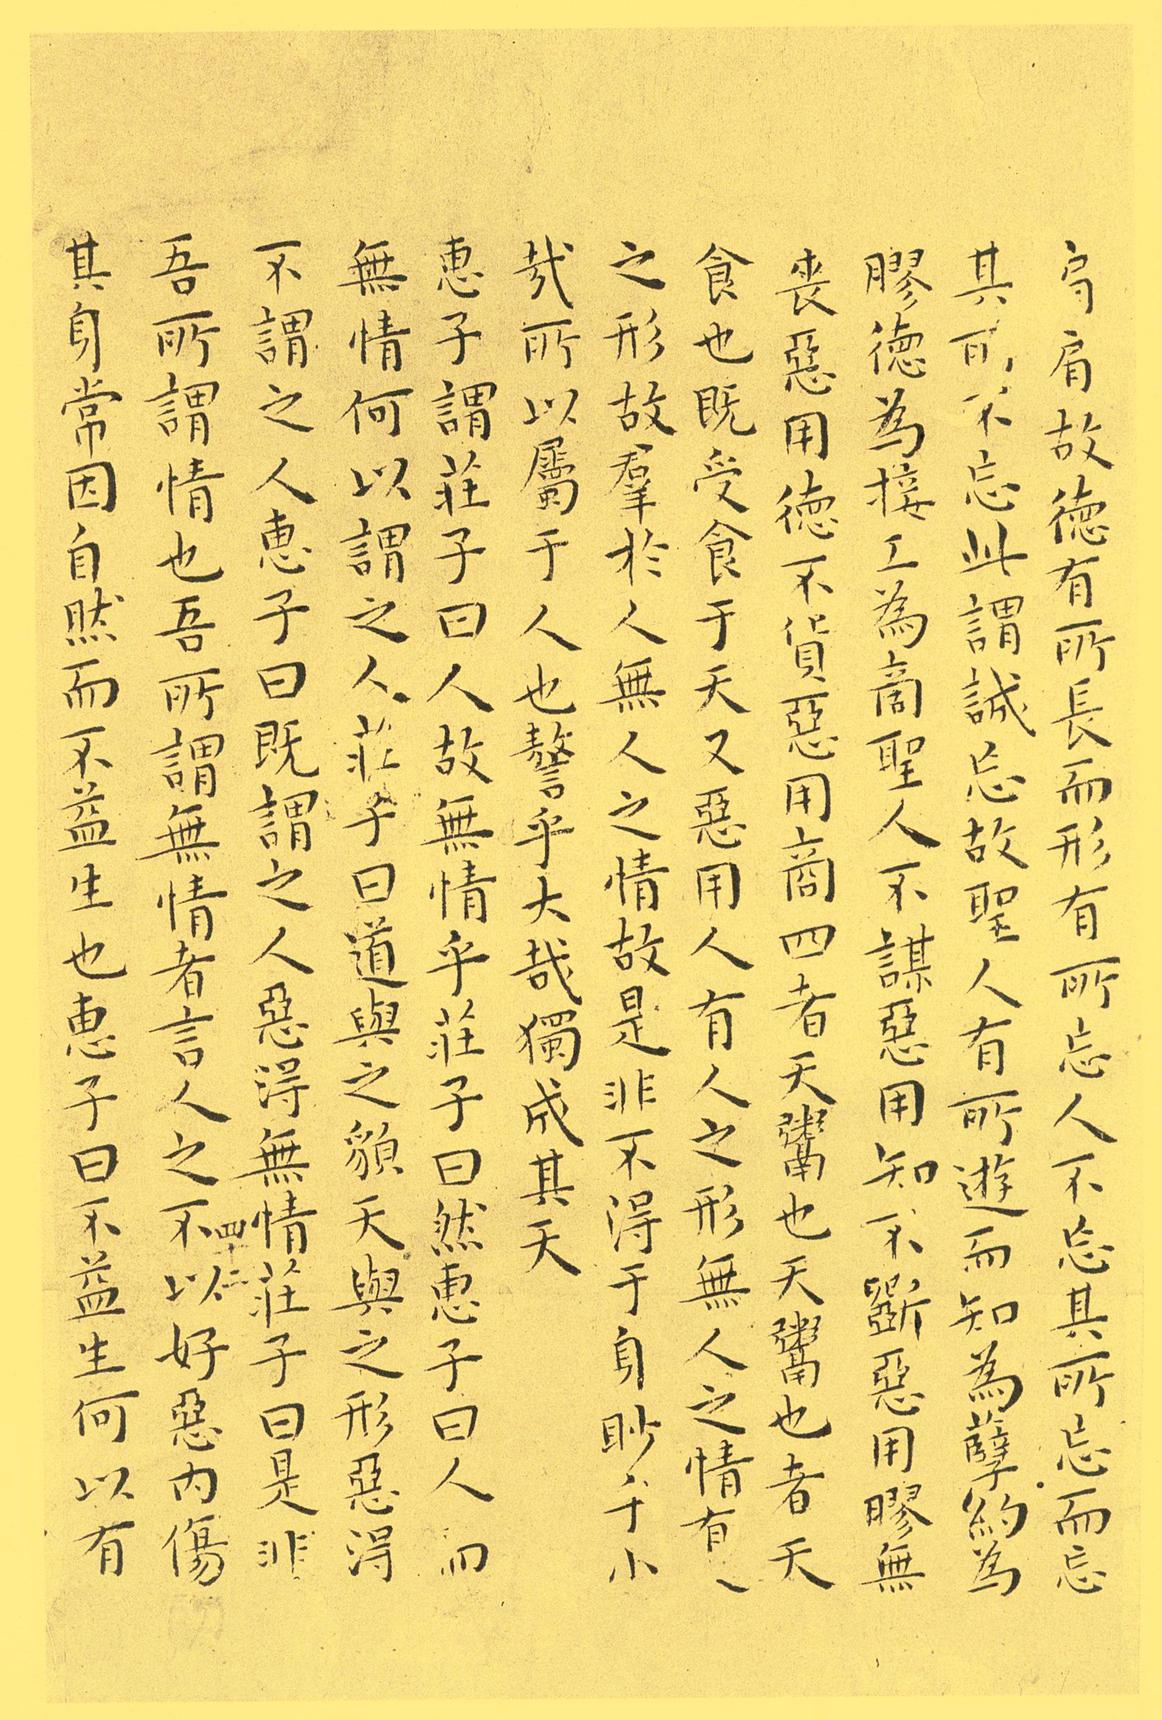 肩肩故德有所長而形有所忘人不忘其所忘而忘
其所不忘此謂誠忘故聖人有所遊而知為孽約為
膠德為接工為商聖人不謀惡用知不斵惡用膠無
喪惡用德不貨惡用商四者天鬻也天鬻也者天
食也既受食于天又惡用人有人之形無人之情有人
之形故羣於人無人之情故是非不得于身眇乎小
哉所以屬于人也謷乎大哉獨成其天
惠子謂莊子曰人故無情乎莊子曰然惠子曰人而
無情何以謂之人莊子曰道與之貌天與之形惡得
不謂之人惠子曰既謂之人惡得無情莊子曰是非
四十二
吾所謂情也吾所謂無情者言人之不以好惡內傷
其身常因自然而不益生也惠子曰不益生何以有